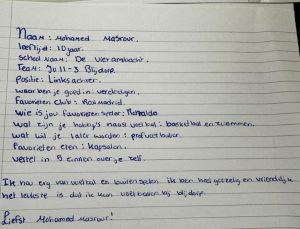 Naam: Mohamed Masrour.
leeftijd: 10 jaar.
school naam: De vierambacht.
Team: Jo11-3 Blijdorp.
positie: Linksachter.
waar ben je goed in: verdedigen.
Favorieten club: Real madrid.
wie is jou favorieten speler: Ronaldo
wat zijn je hobby's naast voetbal: basketbal en zwemmen.
wat wil je later worden: profvoetballer.
Favorieten eten: kapsalon.
vertel in 5 zinnen over je zelf.
Ik hou erg van voetbal en buiten spelen ik ben heel gezellig en vriendelijk
het leukste is dat ik kan voetballen bij blijdorp.
Liefst Mohamed Masrour!